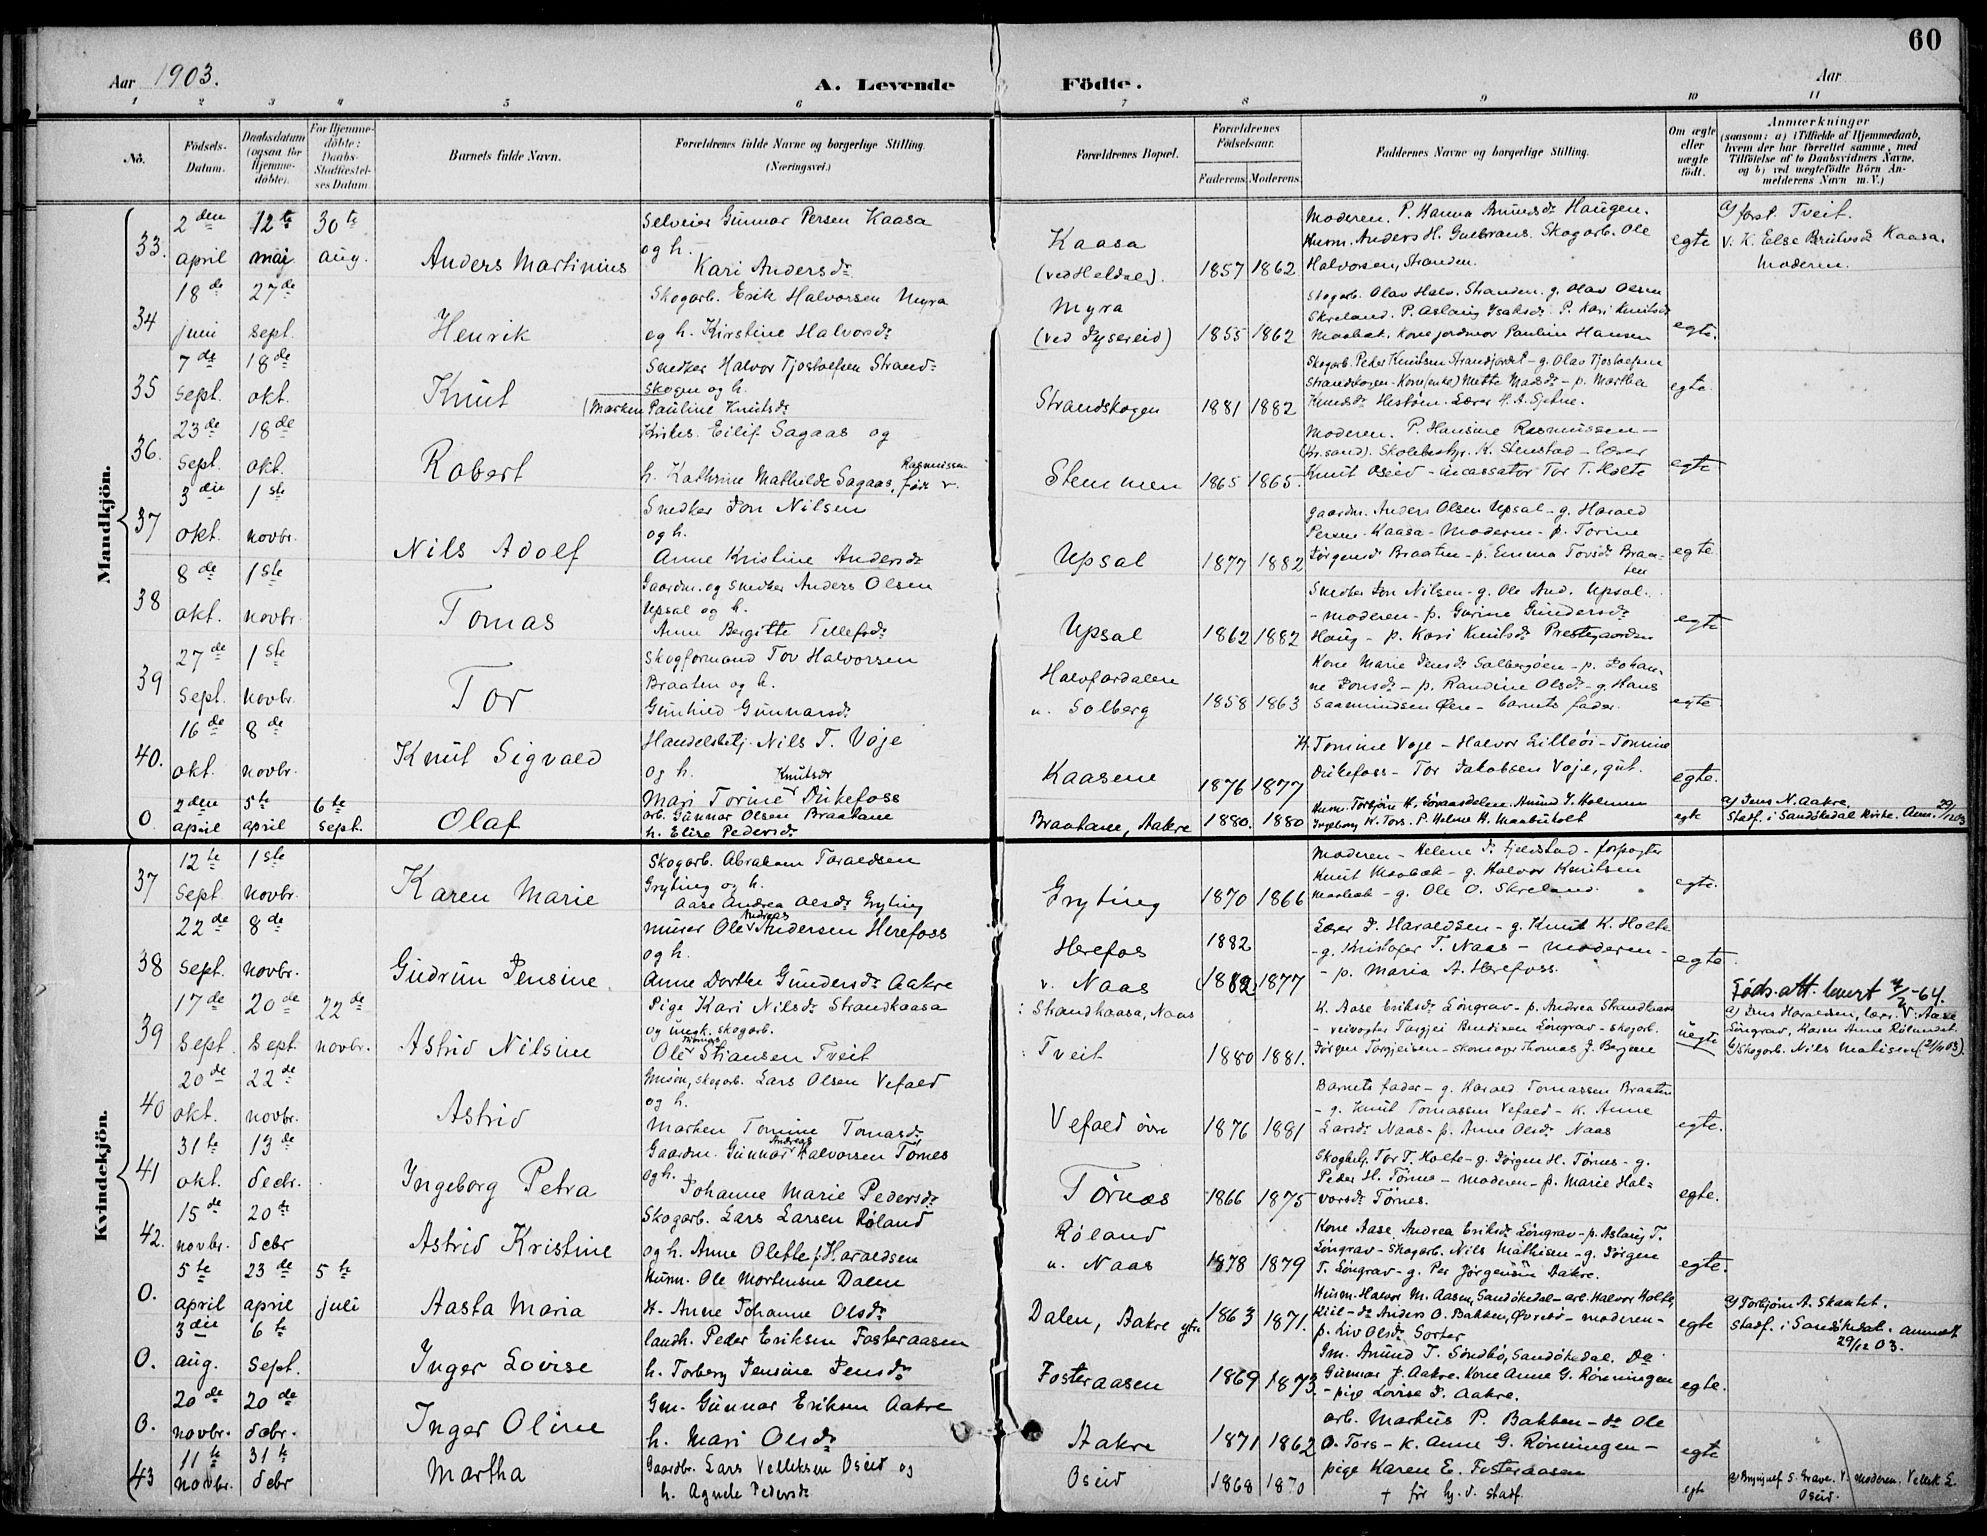 60
Aar 1903.
A. Levende Födte.
Aar
1 2 3 4 5 6 7 8 9 10 11
No.
Födsels-Datum.
Daabsdatum (ogsaa for Hjemme-döbte).
For Hjemme-döbte: Daabs-Stadfæstel-ses Datum
Barnets fulde Navn.
Forældrenes fulde Navne og borgerlige Stilling. (Næringsvei.)
Forældrenes Bopæl.
Forældrenes Födselsaar.
Faderens. Moderens.
Faddernes Navne og borgerlige Stilling.
Om ægte eller uægte födt.
Anmærkninger
(saasom: a) i Tilfælde af Hjemmedaab, hvem der har forrettet samme, med Tilföielse af to Daabsvidners Navne, og b) ved uægtefödte Börn An-melderens Navn m. V.)
Mandkjön.
33. 2den april 12te mai 30te aug. Anders Martinius
Selveier Gunnar Persen Kaasa
og h. Kari Andersdr
Kaasa (ved Heldal). 1857 1862
Moderen. P. Hanna Amundsdr Haugen.
Husm. Anders H. Gulbrans. Skogarb. Ole
Halvorsen, Stranden.
egte
a) forst. Tveit.
V: K. Else Kaasa.
Moderen.
34 18de juni 27de sept. Henrik
Skogarb. Erik Halvorsen Myra
og h. Kirstine Halvorsdr
Myra (ved ) 1855 1862
Skogarb. Olav Halv. Stranden. g. Olav Olsen
Skreland. P. Aslaug Isaksdr. P. Kari Knutsdr
Maabæk. Kone jordmor Pauline Hansen
egte.
35 7de sept. 18de okt. Knut
Snedker Halvor Tjostolfsen Strand-
skogen og h.
(Marken) Pauline Knutsdr
Strandskogen 1881 1882
Skogarb. Peder Knutsen Strandfjordet - g. Olav Tjostolfsen
Strandskogen - Kone (enke) Mette Madsdr - p. Martha
Knudsdr . Lærer H. A. .
egte.
36. 23de sept. 18de okt. Robert
Kirkes. Eilif Sagaas og
h. Kathrine Mathilde Sagaas, født Rasmussen
Stemmen 1865 1865.
Moderen. P. Hansine Rasmussen -
(Kr.sand). Skolebestyr. K. Stenstad - lærer
Knut Oseid - incassator Tor T. Holte
egte
37 3die okt. 1ste novbr. Nils Adolf
Snedker Jon Nilsen
og h.
Anne Kristine Andersdr
Upsal 1877 1882
Gaardm. Anders Olsen Upsal - g. Harald
Persen Kaasa - Moderen - p. Torine
Jørgensdr Braaten - p. Emma Torsdr Braa-
ten
egte
38 8de okt. 1ste novbr. Tomas
Gaardm. og snedker Anders Olsen
Upsal og h.
Anne Bergitte Tellefsdr
Upsal 1862 1882
Snedker Jon Nilsen - g. Ole And. Upsal.
- moderen - p. Gurine Gundersdr
Haug - p. Kari Knutsdr Prestegaarden
egte
39 27de sept. 1ste novbr. Tor
Skogformand Tov Halvorsen
Braaten og h.
Gunhild Gunnarsdr
Halvfardalen
u. Solberg 1858 1863
Kone Marie Jensdr Solbergøen - p. Johan-
ne Jonsdr - p. Randine Olsdr - g. Hans
Saamundsen Øen - barnets fader.
egte
40. 16de okt. 8de novbr. Knut Sigvald
Handelsbetj. Nils T. Voje
og h.
Mari Torine Knutsdr Dukefoss
Kaasene 1876 1877
K. Tomine Voje - Halvor Lilleøi - Tomine
Dukefoss - Tor Jakobsen Voje, gut.
egte.
0. 2den april 5te april 6te sept. Olaf
arb. Gunnar Olsen Braahane
h. Elise Pedersdr
Braahane, Aakre 1880. 1880
Husm. Torbjørn H. Toraasdalen. Amund J. Holmen
Ingeborg K. Tors. P. Helene H. Maabuholt
egte
a) Jens N. Aakre.
Stadf. i Sandøkedal kirke. Anm. 29/12 03
Kvindekjön.
37 12te sept 1ste novbr. Karen Marie
Skogarb. Abraham Taraldsen
Gryting og h.
Aase Andrea Olsdr Gryting
Gryting 1870 1866
Moderen - Helene J. Fjeldstad - forpagter
Knut Maabæk - g. Halvor Knutsen
Maabæk - g. Ole O. Skreland.
egte.
38 22de sept. 8de novbr. Gudrun Jensine
murer Ole Andreas Andersen Herefoss
og h.
Anne Dorthe Gundersdr Aakre
Herefos
v. Naas 1882 (1882) 1877
Lærer J. Haraldsen - g. Knut K. Holte
- g. Kristofer T. Naas - moderen -
- p. Maria A. Herefoss.
egte
39 17de sept. 20de sept. 22de novbr. Astrid Nilsine
Pige Kari Nilsdr Strandkaasa
og ungk. skogarb.
Ole Thomas Stiansen Tveit
: Strandkaasa, Naas
: Tveit 1880 1881.
K. Aase Eriksdr Løngrav - p. Andrea Strandkaasa
- veivogter Targjei Bendixen Løngrav - skogarb.
Jørgen Torgjeisen - skomager Thomas J. Bergene
uegte
Føds.att. levert 4/2 -64.
a) Jens Haraldsen, lærer. V: Aase
Løngrav, Karen Anne .
b) Skogarb. Nils Matisen (21/11 03).
40 20de okt. 22de novbr. Astrid
Gmsøn, skogarb. Lars Olsen Vefald
og h.
Marthen Tomine Tomasdr
Vefald øvre 1876 1881
Barnets fader - g. Harald Tomassen Braaten
- g. Knut Tomassen Vefald - K. Anne
Larsdr Naas - p. Anne Olsdr Naas
egte.
41 31te okt. 13de decbr. Ingeborg Petra
Gaardm. Gunnar Andreas Halvorsen Tørnes
og h.
Johanne Marie Pedersdr
Tørnes 1866 1875
Skogbetj. Tor T. Holte - g. Jørgen H. Tørnes - g.
Peder H. Tørnes - moderen - p. Marie Hal-
vorsdr Tørnes.
egte.
42. 15de novbr. 20de debr Astrid Kristine
Skogarb. Lars Larsen Røland
og h. Anne Olette f. Haraldsen
Røland
u. Naas 1878 1879
Kone Aase Andrea Eriksdr Løngrav - p. Aslaug T.
Løngrav - skogarb. Nils Mathisen - g. Jørgen
T. Løngrav - g. Per Jørgensen Aakre.
egte.
0. 5te april 23de april 5te juli Aasta Maria
Husm. Ole Mortensen Dalen
H. Anne Johanne Olsdr
Dalen, Aakre ytre 1863 1871.
Husm. Halvor M. Aasen, Sandøkedal - arb. Halvor Holte,
Kiil - do Anders O. Bakken, Øvrebø - moderen -
p. Liv Olsdr Sorter
egte
a) Torbjørn A. Skaatet.
Stadf. i Sandøkedal. anmeldt
29/12 03.
0. 3die aug. 6te sept. Inger Lovise
landh. Peder Eriksen Fosteraasen
h. Torborg Jensine Jensdr
Fosteraasen 1869 1873.
Gm. Amund T. Søndbø, Sandøkedal. Do
Gunnar J. Aakre. Kone Anne G. Rønningen
- pige Lovise J. Aakre.
egte.
0. 20de novbr. 20de debr. Inger Oline
Gm. Gunnar Eriksen Aakre
h. Mari Olsdr
Aakre 1871 1862
arb. Markus P. Bakken - do Ole
O. Tors - K. Anne G. Rønningen -
pige Karen E. Fosteraasen
egte
43 11te novbr. 31te debr Martha
Gaardbr. Lars Velleksen Oseid og
h. Agnete Pedersdr
Oseid 1868 1870
† før hj.d. stadf.
egte
a) S. Grave. V. moderen. Vellek L.
Oseid.